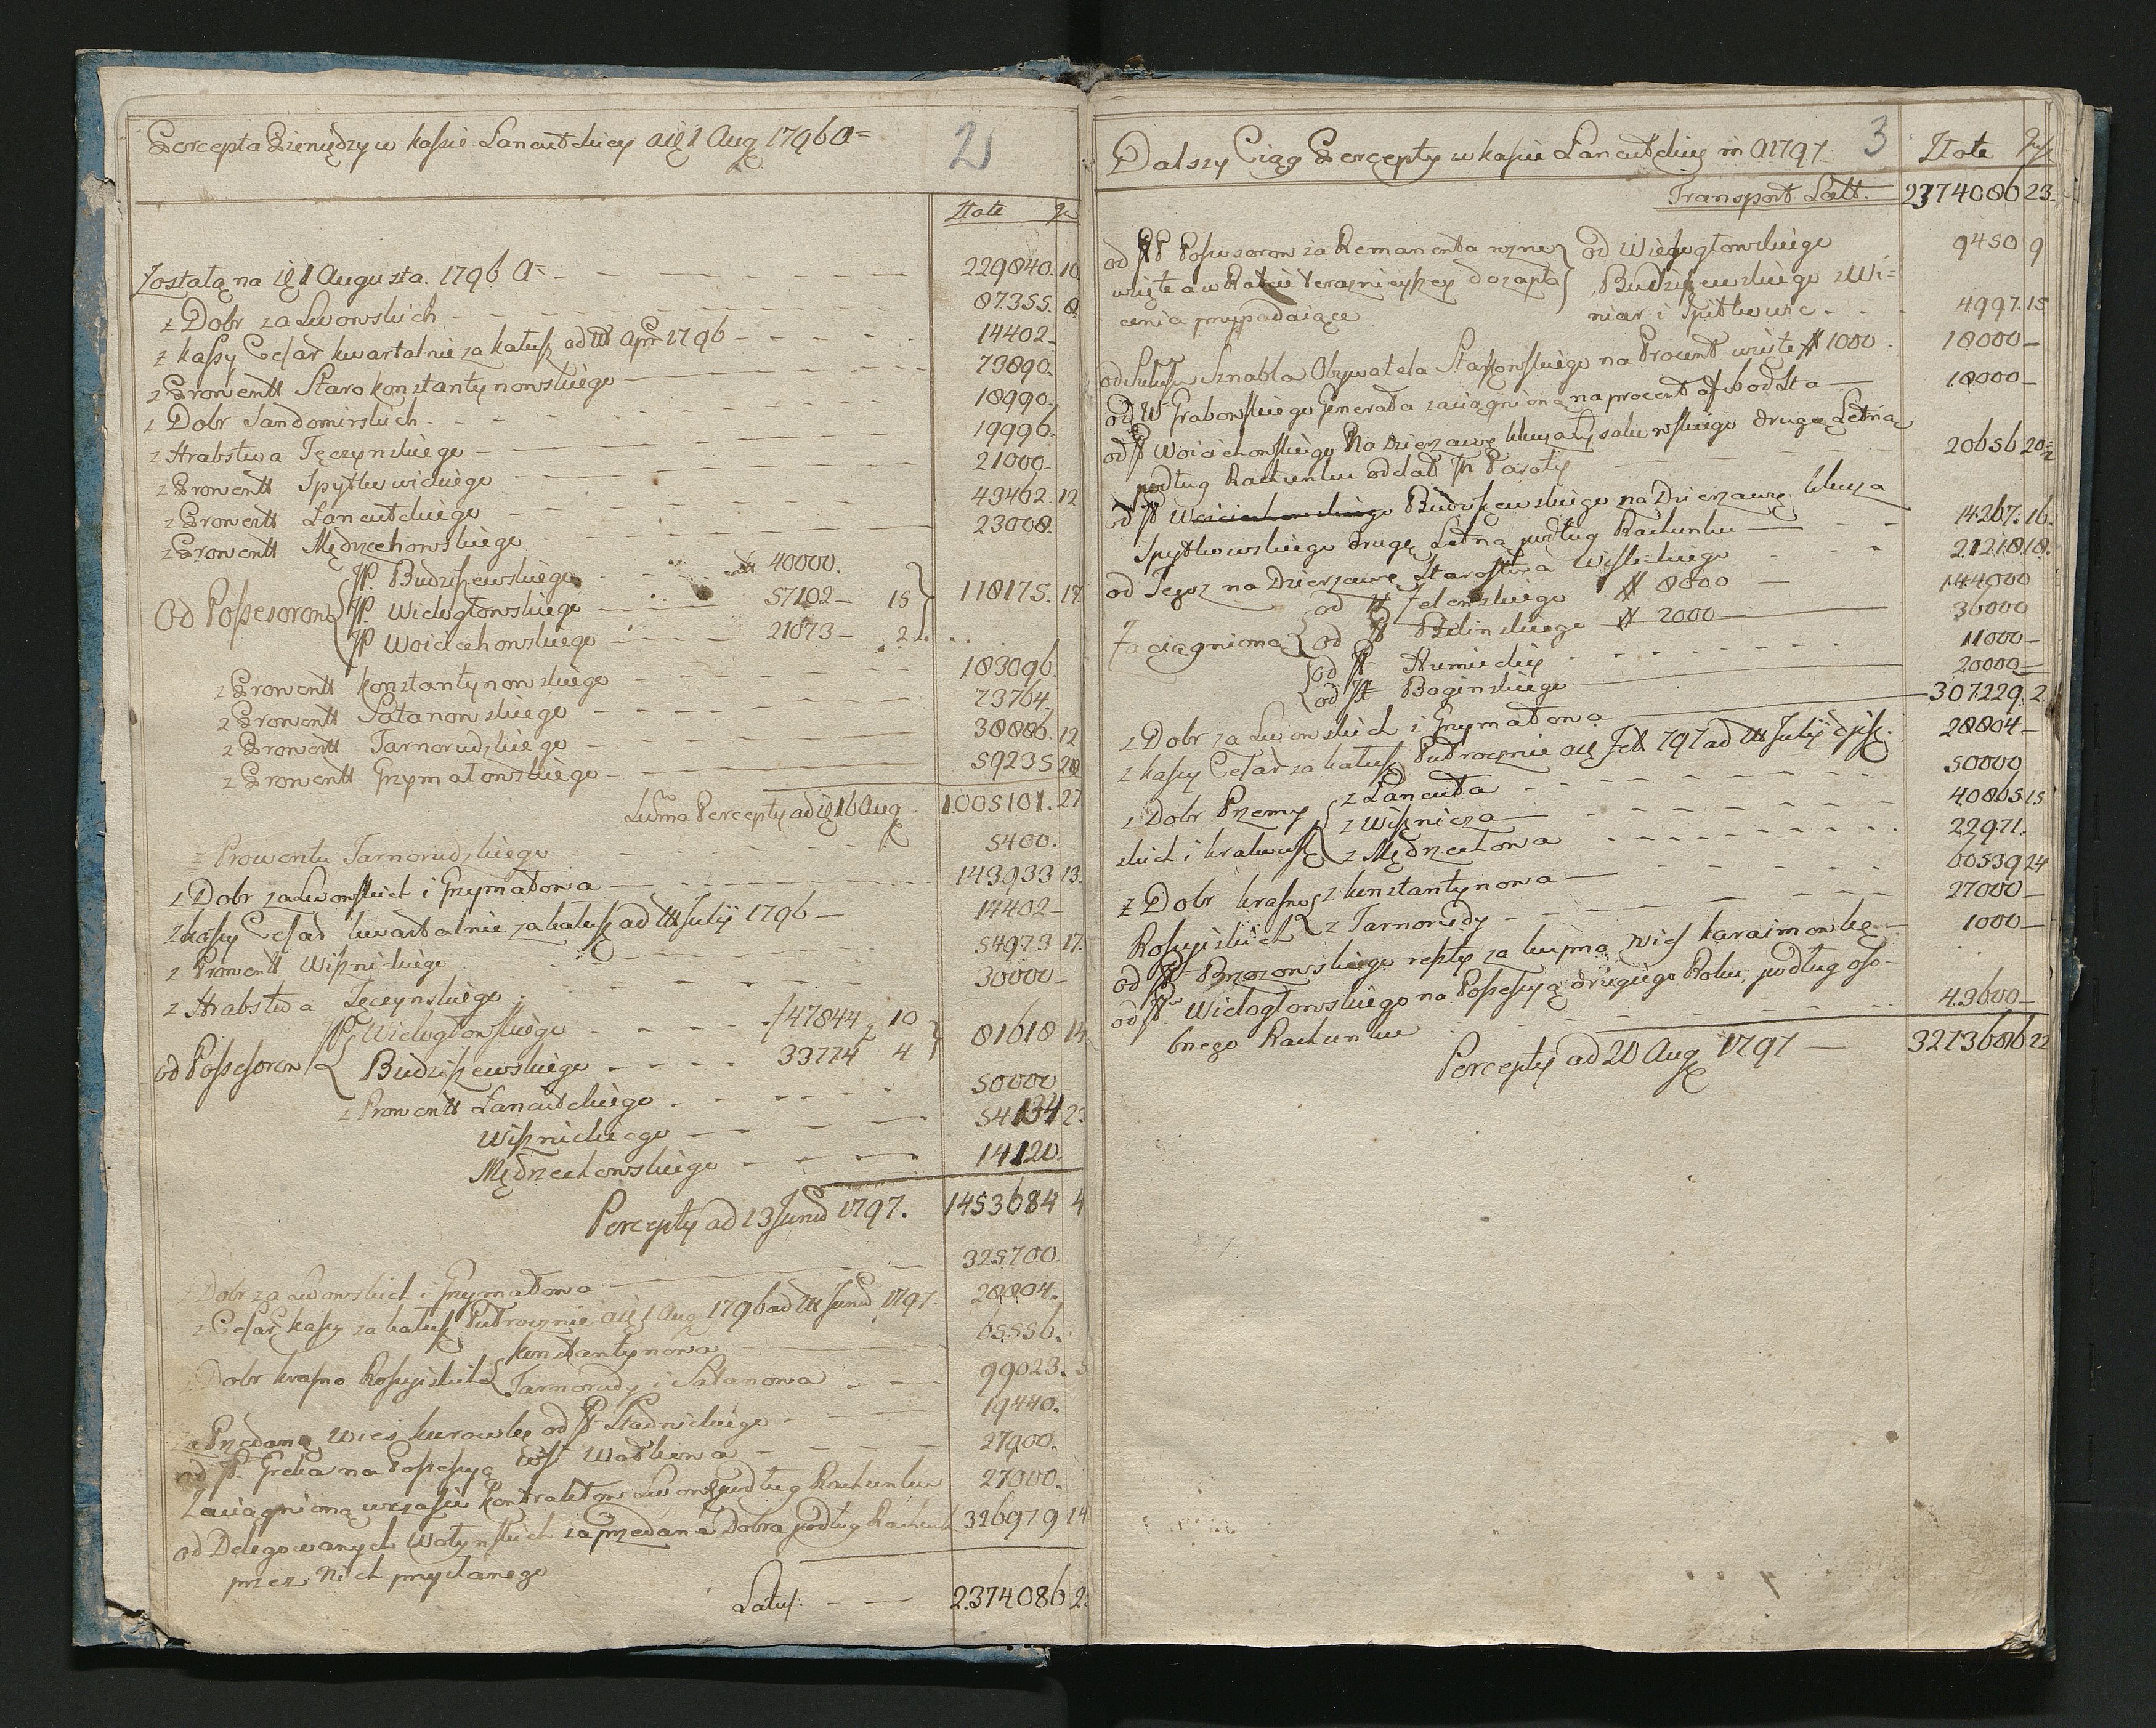 Percepta Pieniędzy w kassie Lancutskiey a 1 Aug 1796 a
2
Złote gr
Zostało na 1 Augusta. 1796 a 229840. 10
z Dobr za Lwowskich 87355. 8
z kassy Cesar kwartalnie za kałusz ad Apr 1796 14402
z Prowentt Staro konstantynowskiego 73890.
z Dobr Sandomirskich 18990.
z Hrabstwa Tęczynskiego 19996.
z Prowentt Spytkowickiego 21000.
z Prowentt Lancutskiego 43462. 12
z Prowentt Mędrzechowskiego 23008.
Od Possesorow
JP. Budziszewskiego 40000.
JP. Wielogłowskiego 57102 15
JP Woiciechowskiego 21073 2
118175. 17
z Prowentt konstantynowskiego 183096.
z Prowentt Satanowskiego 73764.
z Prowentt Tarnorudzkiego 38886. 12
z Prowentt Grzymałowskiego 59235 28
Suma Percepty ad 16 Aug 1005101. 27
z Prowentu Tarnorudzkiego 5400.
z Dobr za Lwowskich i Grzymałowa 143933 13.
z kassy Cesar kwartalnie za kałusz ad Julij 1796 14402
z Prowentt Wisznickiego 54973 17.
z Hrabstwa Tęczynskiego 30000
od Possesorow
JP Wielogłowskiego 47844 10
Budziszewskiego 33774 4
81618 14
z Prowentt Lancutskiego 50000
Wisznickiego 54134 23
Mędrzechowskiego 14120.
Percepty ad 23 Junii 1797. 1453684 4
325700.
z Dobr za Lwowskich i Grzymałowa 28804.
z Cesar kassy za kałusz Pułrocznie a 1 Aug 1796 ad Junii 1797
konstantynowa
Dobr krajno Rossyiskich
Tarnorudy i Satanowa 99023. 5
za Przedaną Wies kurowkę od JP Stadnickiego 19440.
od JP. Greka na Possesyą Wsi Wołkowa 27900.
Zaciągniono w czasie kontraktow Lwows podług Rachunku 27000.
od Delegowanych Wołynskich za przedane Dobra podług Rachunk 326979 14
przez Nich przysłanego
Latus 2374086 23
Dalszy Ciąg Percepty w kassie Lancutskiey in a 1797
3
Złote gr
Transport Latt. 2374086 23.
od JP Possesorow za Remanenta rożne
wzięte a w Ratcie terazniejszey do zapła
cenia przypadaiące
od Wielogłowskiego 9450 9
Budziszewskiego z Wi=
niar i Spitkowic 4997. 15
od Sznabla Obywatela Staszowskiego na Procent wzięte # 1000 18000
od W Grabowskiego Generała zaciągniono na procent 18000
od JP Woiciechowskiego Na Dzierzawę klucza Łysakowskiego drugo Letnią
podług Rachunku oddał JP Pasały 20656 20
od JP Woiciechowskiego Budziszewskiego na Dzierzawę klucza
Spytkowskiego drugo Letną podług Rachunku 14267. 16.
od Tegoz na Dzierzawę Starostwa Wislickiego 21218 18.
Zaciągniono
od Zelenskiego # 8000 144000
od JP Bilinskiego # 2000 36000
od JP Humieckiey 11000
od JP Baginskiego 20000
z Dobr za Lwowskich i Grzymałowa 307229. 2
z kassy Cesar za kałusz Pułrocznie a Feb 797 ad Julij 28804
z Dobr Przemy
skich i krakows
z Lancuta 50000
z Wisznicza 40865 15
z Mędrzechowa 22971.
z Dobr krajno
Rossyiskich
z konstantynowa
z Tarnorudy 27000
od JP Brzozowskiego resztę za kupną Wieś karaimowkę 1000
od JP Wielogłowskiego na Possesyą drugiego Roku, podług oso-
bnego Rachunku 43600
Percepty ad 20 Aug 1797 3273686 22